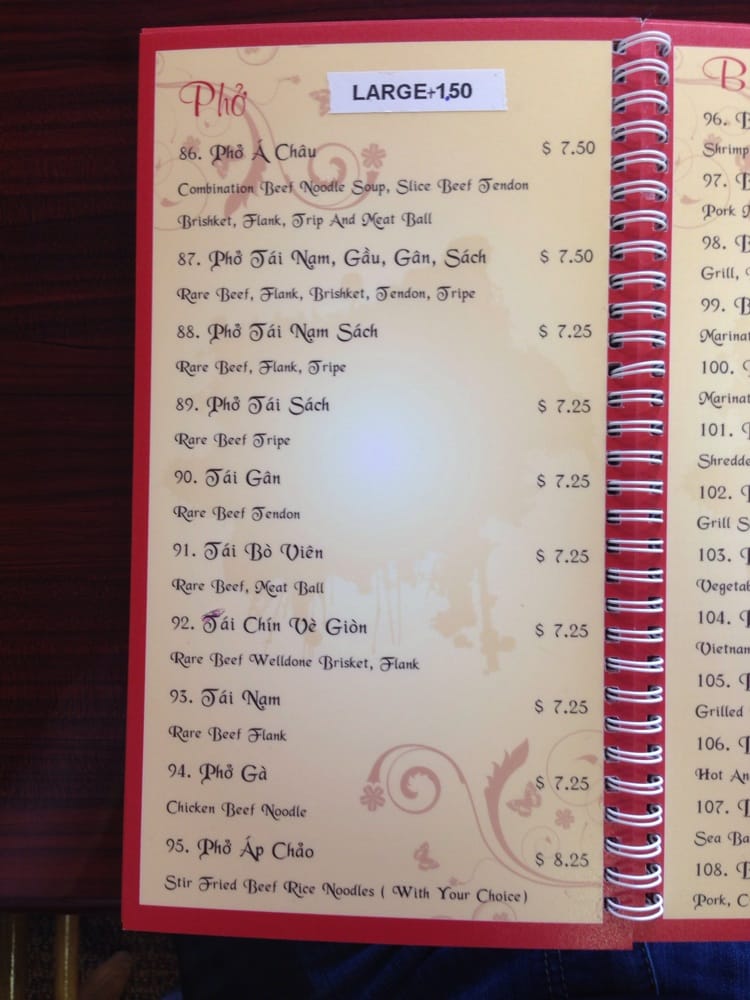 Phở
LARGE+1,50
86. Phở Á Châu $ 7.50
Combination Beef Noodle Soup, Slice Beef Tendon
Brishket, Flank, Trip And Meat Ball
87. Phở Tái Nạm, Gầu, Gân, Sách $ 7.50
Rare Beef, Flank, Brishket, Tendon, Tripe
88. Phở Tái Nạm Sách $ 7.25
Rare Beef, Flank, Tripe
89. Phở Tái Sách $ 7.25
Rare Beef Tripe
90. Tái Gân $ 7.25
Rare Beef Tendon
91. Tái Bò Viên $ 7.25
Rare Beef, Meat Ball
92. Tái Chín Vè Giòn $ 7.25
Rare Beef Welldone Brisket, Flank
93. Tái Nạm $ 7.25
Rare Beef Flank
94. Phở Gà $ 7.25
Chicken Beef Noodle
95. Phở Áp Chảo $ 8.25
Stir Fried Beef Rice Noodles ( With Your Choice)
B
96. B
Shrimp
97. B
Pork
98. B
Grill,
99. B
Marinat
100.
Marinat
101.
Shredde
102.
Grill S
103.
Vegetab
104.
Vietnam
105.
Grilled
106.
Hot An
107.
Sea Ba
108.
Pork, C